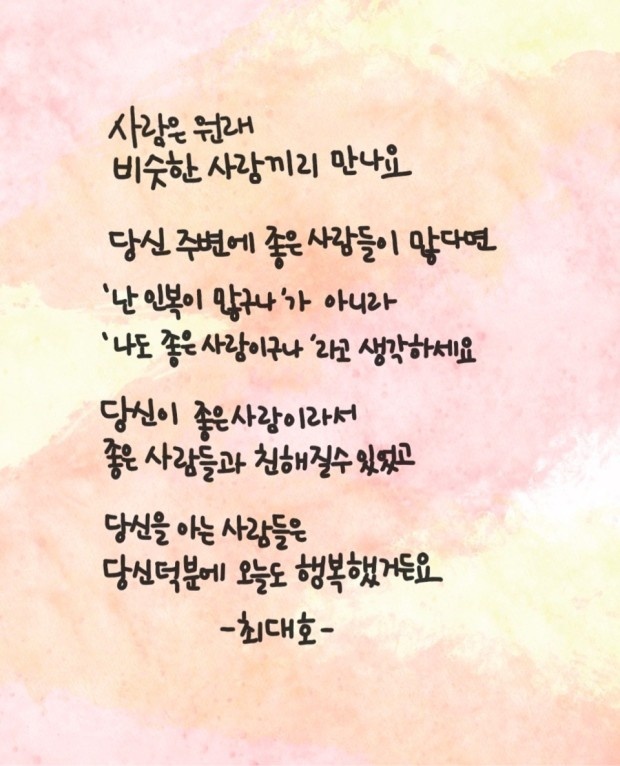 사람은 원래
비슷한 사람끼리 만나요
당신 주변에 좋은 사람들이 많다면
'난 인복이 많구나'가 아니라
'나도 좋은 사람이구나'라고 생각하세요
당신이 좋은 사람이라서
좋은 사람들과 친해질수 있었고
당신을 아는 사람들은
당신덕분에 오늘도 행복했거든요
-최대호-